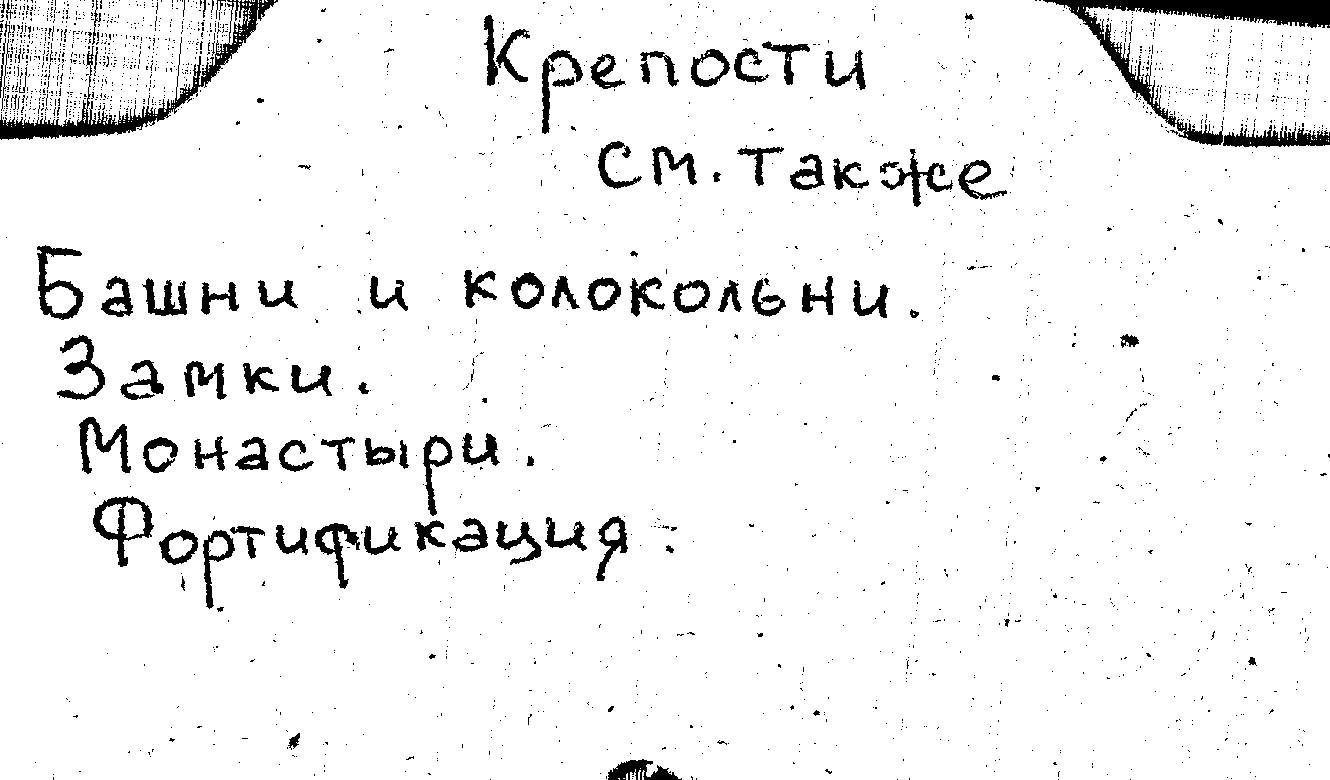 Крепости
См. также
Башни и колокольни.
Замки.
Монастыри.
Фортификация.